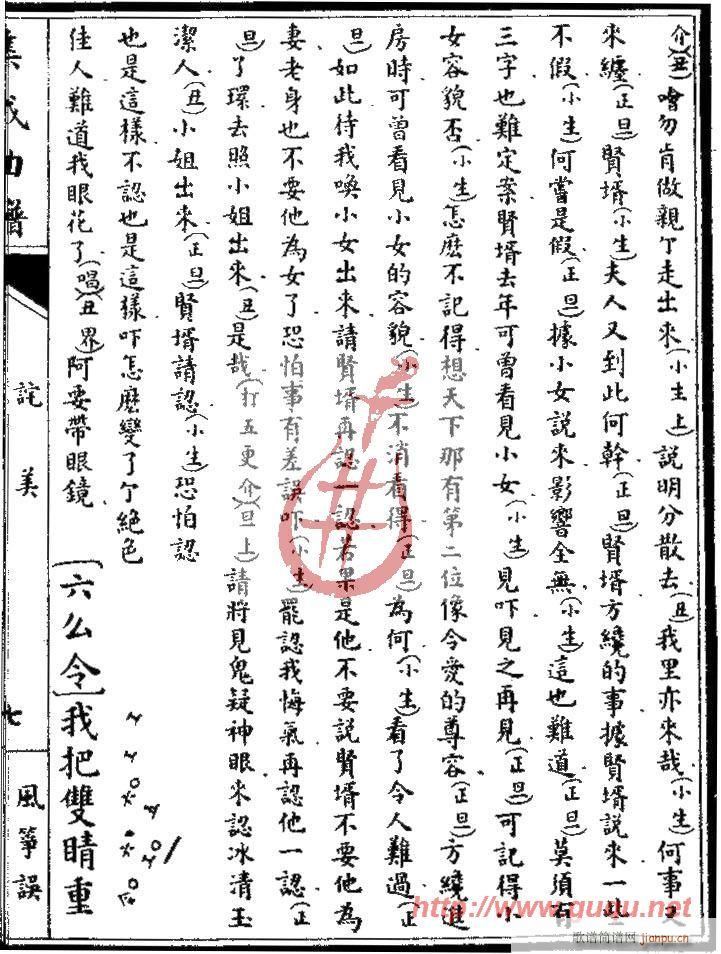 介)(丑)噲勿肯做親亇走出來(小生上)説明分散去(丑)我里亦来哉(小生)何事又
來纏(正旦)賢壻(小生)夫人又到此何幹(正旦)賢壻方纔的事據賢壻説來一些
不假(小生)何嘗是假(正旦)據小女説來影響全無(小生)這也難道(正旦)莫須有
三字也難定案賢壻去年可曾看見小女(小生)見吓見之再見(正旦)可記得小
女容貌否(小生)怎麽不記得想天下那有第二位像令愛的尊容(正旦)方纔進
房時可曾看見小女的容貌(小生)不消看得(正旦)為何(小生)看了令人難過(正
旦)如此待我喚小女出來請賢壻再認一認若果是他不要説賢壻不要他為
妻老身也不要他為女了恐怕事有差誤吓(小生)罷認我悔氣再認他一認(正
旦)了環去照小姐出來(丑)是哉(打五更介)(旦上)請將見鬼疑神眼来認冰清玉
潔人(丑)小姐出來(正旦)賢壻請認(小生)恐怕認
也是這樣不認也是這樣吓怎麽變了亇絕色
佳人難道我眼花了(唱)(丑界)阿要帶眼鏡
[六么令]我把雙睛重
集成曲譜
詫美
七
風箏誤
http://www.ququ.net
歌谱简谱网
jianpu.cn